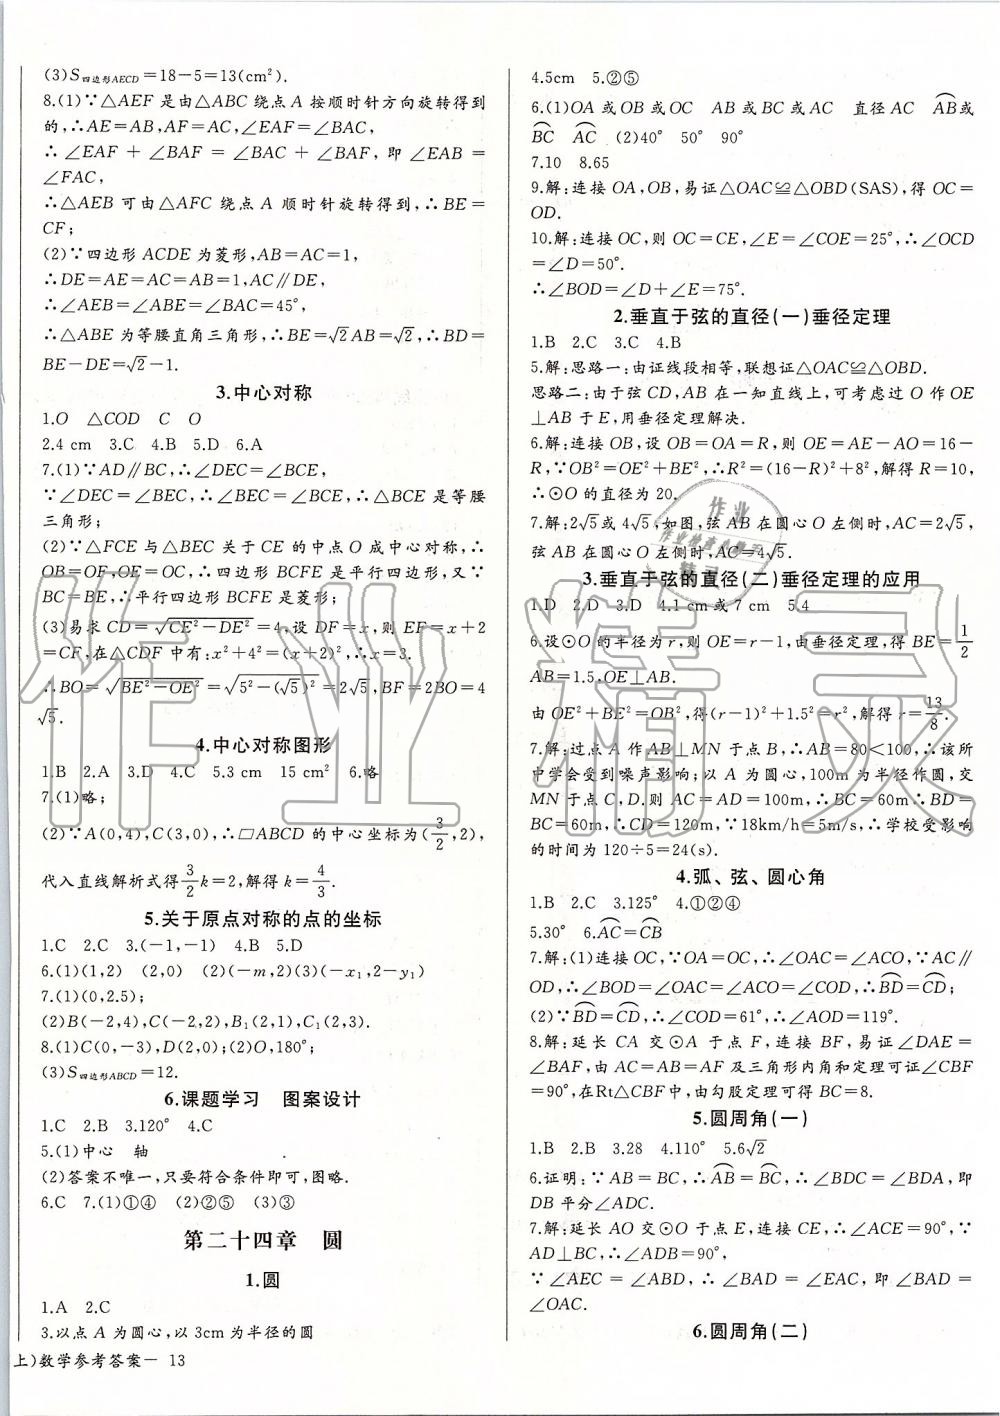 (3)S四边形AECD=18-5=13(cm²).
8.(1)∵△AEF 是由△ABC 绕点 A 按顺时针方向旋转得到
的,∴AE=AB,AF=AC,∠EAF=∠BAC,
∴∠EAF+∠BAF=∠BAC+∠BAF,即∠EAB=
∠FAC,
∴△AEB 可由△AFC 绕点 A 顺时针旋转得到,∴BE=
CF;
(2)∵四边形 ACDE 为菱形,AB=AC=1,
∴DE=AE=AC=AB=1,AC∥DE,
∴∠AEB=∠ABE=∠BAC=45°,
∴△ABE 为等腰直角三角形,∴BE=√2AB=√2,∴BD=
BE-DE=√2-1.
3.中心对称
1.O △COD C O
2.4 cm 3.C 4.B 5.D 6.A
7.(1)∵AD∥BC,∴∠DEC=∠BCE,
∵∠DEC=∠BEC,∴∠BEC=∠BCE,∴△BCE 是等腰
三角形;
(2)∵△FCE 与△BEC 关于 CE 的中点 O 成中心对称,∴
OB=OF,OE=OC,∴四边形 BCFE 是平行四边形,又∵
BC=BE,∴平行四边形 BCFE 是菱形;
(3)易求 CD=√CE²-DE²=4,设 DF=x,则 EF=x+2
=CF,在△CDF 中有:x²+4²=(x+2)²,∴x=3.
∴BO=√BE²-OE²=√5²-(√5)²=2√5,BF=2BO=4
√5.
4.中心对称图形
1.B 2.A 3.D 4.C 5.3 cm 15 cm² 6.略
7.(1)略;
(2)∵A(0,4),C(3,0),∴□ABCD 的中心坐标为(3/2,2),
代入直线解析式得3/2k=2,解得 k=4/3.
5.关于原点对称的点的坐标
1.C 2.C 3.(-1,-1) 4.B 5.D
6.(1)(1,2) (2,0) (2)(-m,2)(3)(-x₁,2-y₁)
7.(1)(0,2.5);
(2)B(-2,4),C(-2,2),B₁(2,1),C₁(2,3).
8.(1)C(0,-3),D(2,0);(2)O,180°;
(3)S四边形ABCD=12.
6.课题学习 图案设计
1.C 2.B 3.120° 4.C
5.(1)中心 轴
(2)答案不唯一,只要符合条件即可.
6.C 7.(1)①④ (2)②⑤ (3)③
第二十四章 圆
1.圆
1.A 2.C
3.以点 A 为圆心,以 3cm 为半径的圆
上)数学参考答案— 13
4.5cm 5.②⑤
6.(1)OA 或 OB 或 OC AB 或 BC 或 AC 直径 AC A͡B 或
B͡C A͡C (2)40° 50° 90°
7.10 8.65
9.解:连接 OA,OB,易证△OAC≌△OBD(SAS),得 OC=
OD.
10.解:连接 OC,则 OC=CE,∠E=∠COE=25°,∴∠OCD
=∠D=50°.
∴∠BOD=∠D+∠E=75°.
2.垂直于弦的直径(一)垂径定理
1.B 2.C 3.C 4.B
5.解:思路一:由证线段相等,联想证△OAC≌△OBD.
思路二:由于弦 CD,AB 在一知直线上,可考虑过 O 作 OE
⊥AB 于 E,用垂径定理解决.
6.解:连接 OB,设 OB=OA=R,则 OE=AE-AO=16-
R,∵OB²=OE²+BE²,∴R²=(16-R)²+8²,解得 R=10,
∴⊙O 的直径为 20.
7.解:2√5或 4√5,如图,弦 AB 在圆心 O 左侧时,AC=2√5,
弦 AB 在圆心 O 左侧时,AC=4√5.
3.垂直于弦的直径(二)垂径定理的应用
1.D 2.D 3.D 4.1 cm 或 7 cm 5.4
6.设⊙O 的半径为 r,则 OE=r-1,由垂径定理,得 BE=1/2
AB=1.5.OE⊥AB.
由 OE²+BE²=OB²,得(r-1)²+1.5²=r²,解得 r=13/8.
7.解:过点 A 作 AB⊥MN 于点 B,∴AB=80<100,∴该所
中学会受到噪声影响;以 A 为圆心,100m 为半径作圆,交
MN 于点 C,D.则 AC=AD=100m,∴BC=60m∴BD=
BC=60m,∴CD=120m,∵18km/h=5m/s,∴学校受影响
的时间为 120÷5=24(s).
4.弧、弦、圆心角
1.B 2.C 3.125° 4.①②④
5.30° 6.A͡C=C͡B
7.解:(1)连接 OC,∵OA=OC,∴∠OAC=∠ACO,∵AC∥
OD,∴∠BOD=∠OAC=∠ACO=∠COD,∴B͡D=C͡D;
(2)∵B͡D=C͡D,∴∠COD=61°,∴∠AOD=119°.
8.解:延长 CA 交⊙A 于点 F,连接 BF,易证∠DAE=
∠BAF,由 AC=AB=AF 及三角形内角和定理可证∠CBF
=90°,在Rt△CBF 中,由勾股定理可得 BC=8.
5.圆周角(一)
1.B 2.B 3.28 4.110° 5.6√2
6.证明:∵AB=BC,∴A͡B=B͡C,∴∠BDC=∠BDA,即
DB 平分∠ADC.
7.解:延长 AO 交⊙O 于点 E,连接 CE,∴∠ACE=90°,∵
AD⊥BC,∴∠ADB=90°;
∵∠AEC=∠ABD,∴∠BAD=∠EAC,即∠BAD=
∠OAC.
6.圆周角(二)
作业精灵